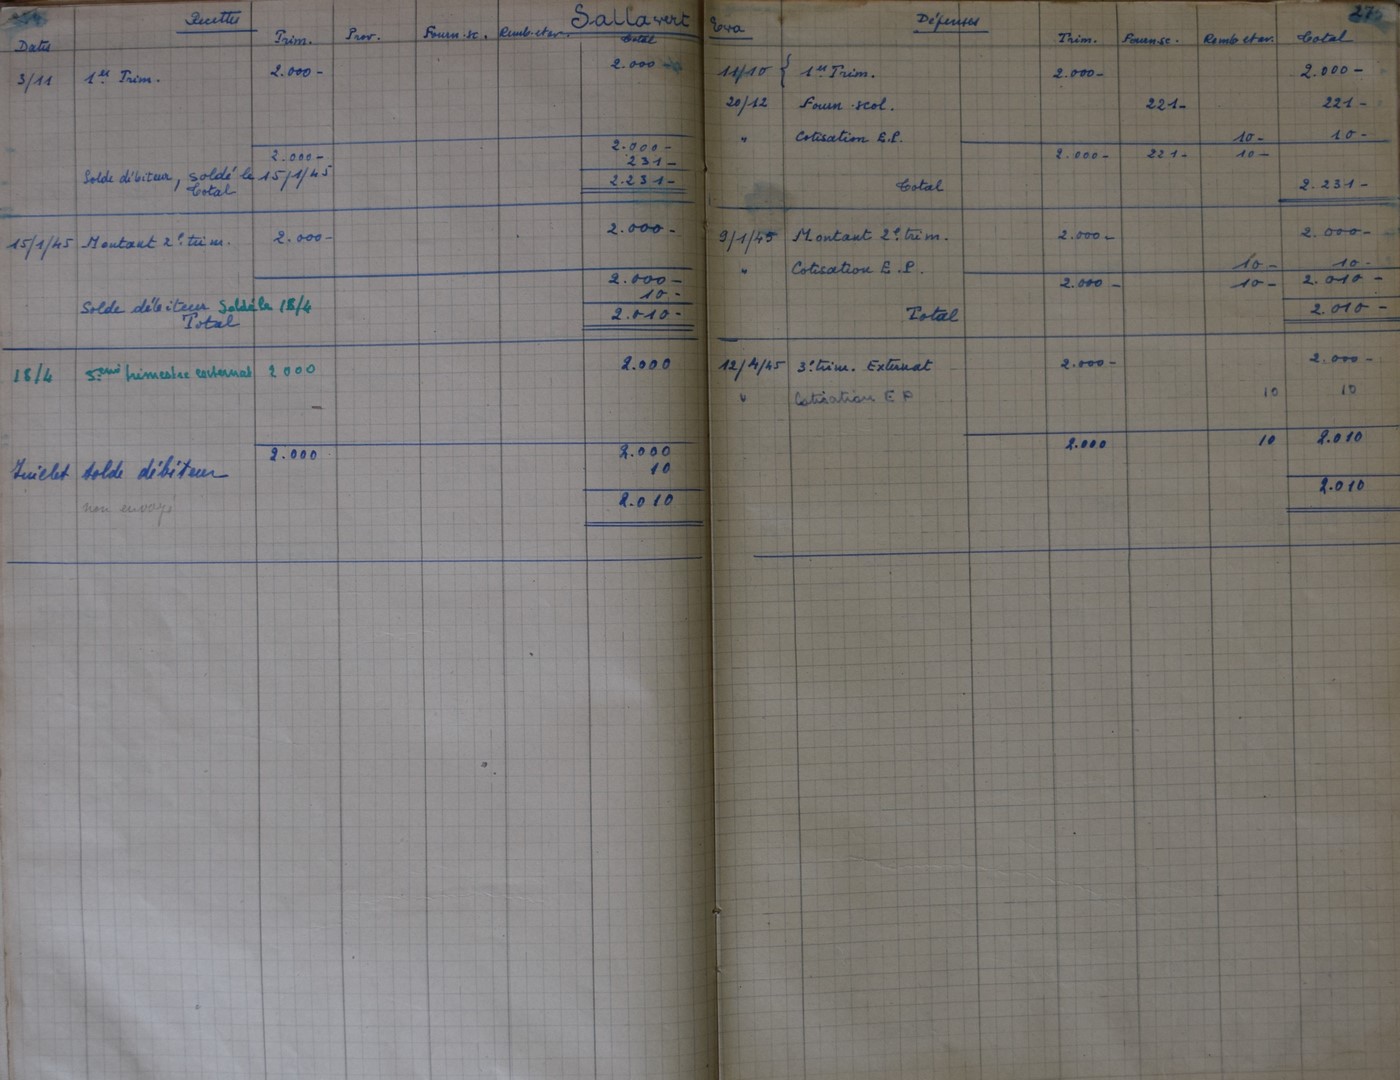 Recettes
Sallawert
Date Trim. Prov. Fourn. sc. Remb. et av. Total
3/11 1er Trim. 2.000- 2.000
2.000- 2.000-
231-
Solde débiteur, soldé le 15/1/45
Total 2.231-
15/1/45 Montant 2e trim. 2.000- 2.000-
2.000-
10-
Solde débiteur Soldé le 18/4
Total 2.010-
18/4 3ème trimestre externat 2000 2.000
2.000 2.000
Juillet Solde débiteur 10
non envoyé 2.010
Eva
Dépenses
275
Trim. Fourn sc. Remb et av. Total
11/10 { 1er Trim. 2.000- 2.000-
20/12 Fourn. scol. 221- 221-
" Cotisation E.P. 10- 10-
2.000- 221- 10-
Total 2.231-
9/1/45 Montant 2e trim. 2.000- 2.000-
" Cotisation E.P. 10- 10-
2.000- 10- 2.010-
Total 2.010-
12/4/45 3e trim. Externat 2.000- 2.000-
" Cotisation E P 10 10
2.000 10 2.010
2.010